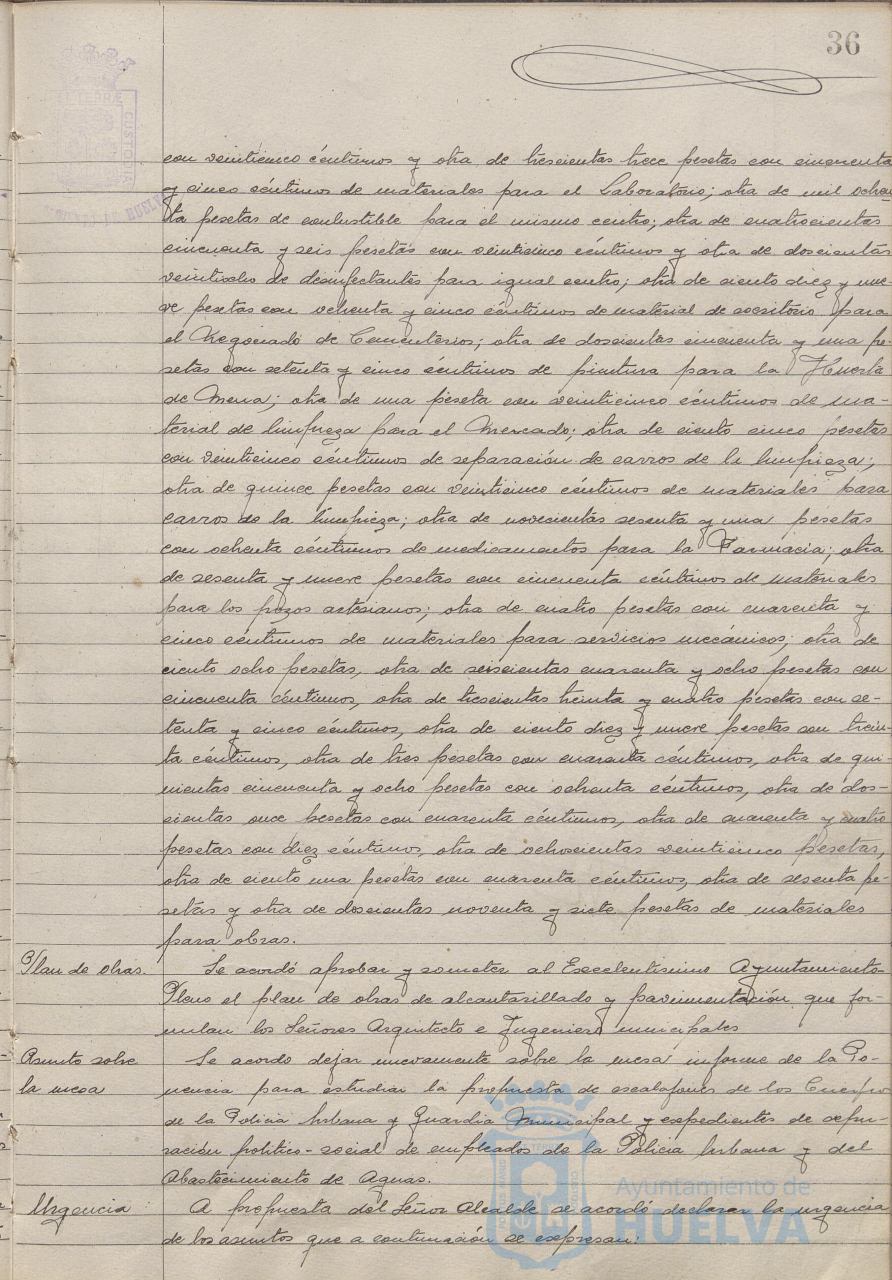 36
con veinticinco céntimos y otra de trescientas trece pesetas con cincuenta
y cinco céntimos de materiales para el Laboratorio; otra de mil ochen-
ta pesetas de combustible para el mismo centro; otra de cuatrocientas
cincuenta y seis pesetas con veinticinco céntimos y otra de doscientas
veintiocho de desinfectantes para igual centro; otra de ciento diez y nue-
ve pesetas con ochenta y cinco céntimos de material de escritorio para
el Negociado de Cementerios; otra de doscientas cincuenta y una pe-
setas con setenta y cinco céntimos de pintura para la Huerta
de Mena; otra de una peseta con veinticinco céntimos de ma-
terial de limpieza para el Mercado; otra de ciento cinco pesetas
con veinticinco céntimos de reparación de carros de la limpieza;
otra de quince pesetas con veinticinco céntimos de materiales para
carros de la limpieza; otra de novecientas sesenta y una pesetas
con ochenta céntimos de medicamentos para la Farmacia; otra
de sesenta y nueve pesetas con cincuenta céntimos de materiales
para los pozos artesianos; otra de cuatro pesetas con cuarenta y
cinco céntimos de materiales para servicios mecánicos; otra de
ciento ocho pesetas, otra de seiscientas cuarenta y ocho pesetas con
cincuenta céntimos, otra de trescientas treinta y cuatro pesetas con se-
tenta y cinco céntimos, otra de ciento diez y nueve pesetas con trein-
ta céntimos, otra de tres pesetas con cuarenta céntimos, otra de qui-
nientas cincuenta y ocho pesetas con ochenta céntimos, otra de dos-
cientas once pesetas con cuarenta céntimos, otra de cuarenta y cuatro
pesetas con diez céntimos, otra de ochocientas veinticinco pesetas,
otra de ciento una pesetas con cuarenta céntimos, otra de sesenta pe-
setas y otra de doscientas noventa y siete pesetas de materiales
para obras.
Plan de obras. Se acordó aprobar y someter al Excelentísimo Ayuntamiento
Pleno el plan de obras de alcantarillado y pavimentación que for-
mulan los Señores Arquitecto e Ingeniero municipales
Asunto sobre la mesa Se acordo dejar nuevamente sobre la mesa informe de la Po-
nencia para estudiar la propuesta de escalafones de los Cuerpos
de la Policia Urbana y Guardia Municipal y expedientes de depu-
ración politico-social de empleados de la Policia Urbana y del
Abastecimiento de Aguas.
Urgencia A propuesta del Señor Alcalde se acordó declarar la urgencia
de los asuntos que a continuación se expresan:
Ayuntamiento de
HUELVA